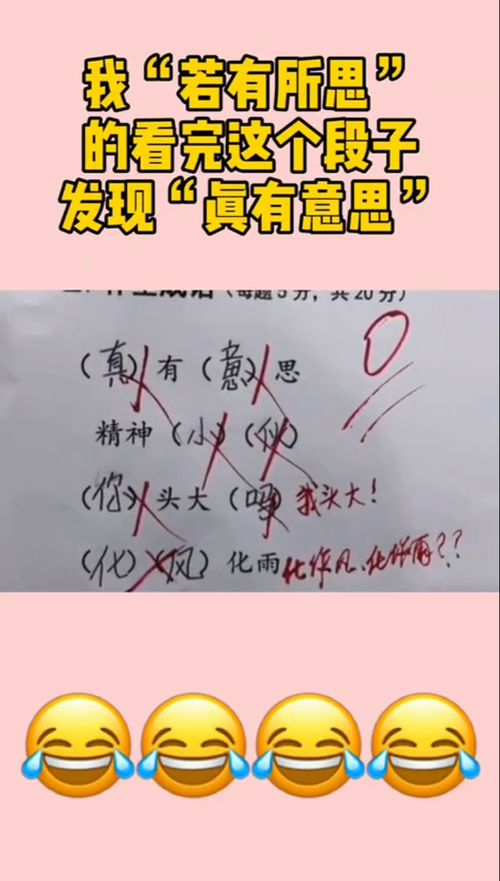 我“若有所思”
的看完这个段子
发现“真有意思”
(每题5分，共20分)
(真)有(意)思
精神(小)(伙)
(你)头大(吗) 我头大！
(化)(风)化雨 化作风、化作雨？？
0